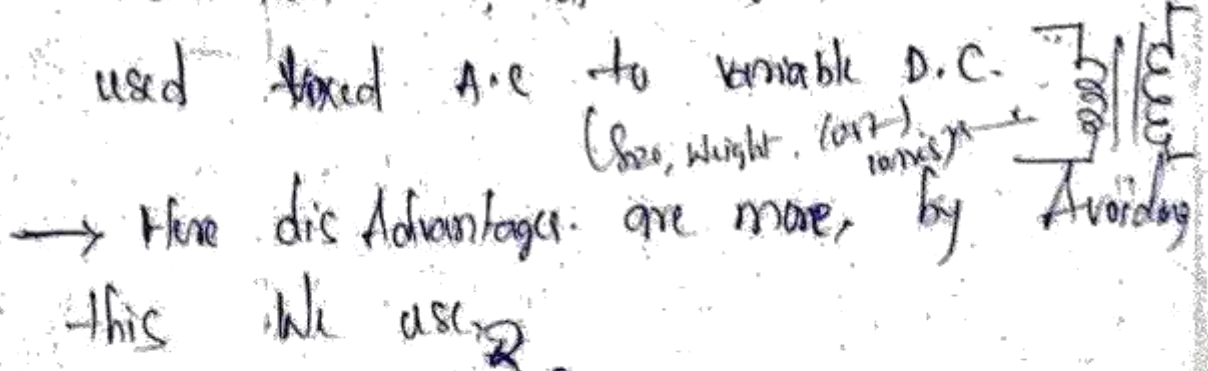 used fixed A.C to variable D.C.
(Size, Weight, cost)
→ Here dis Advantages are more, by Avoiding
this We use